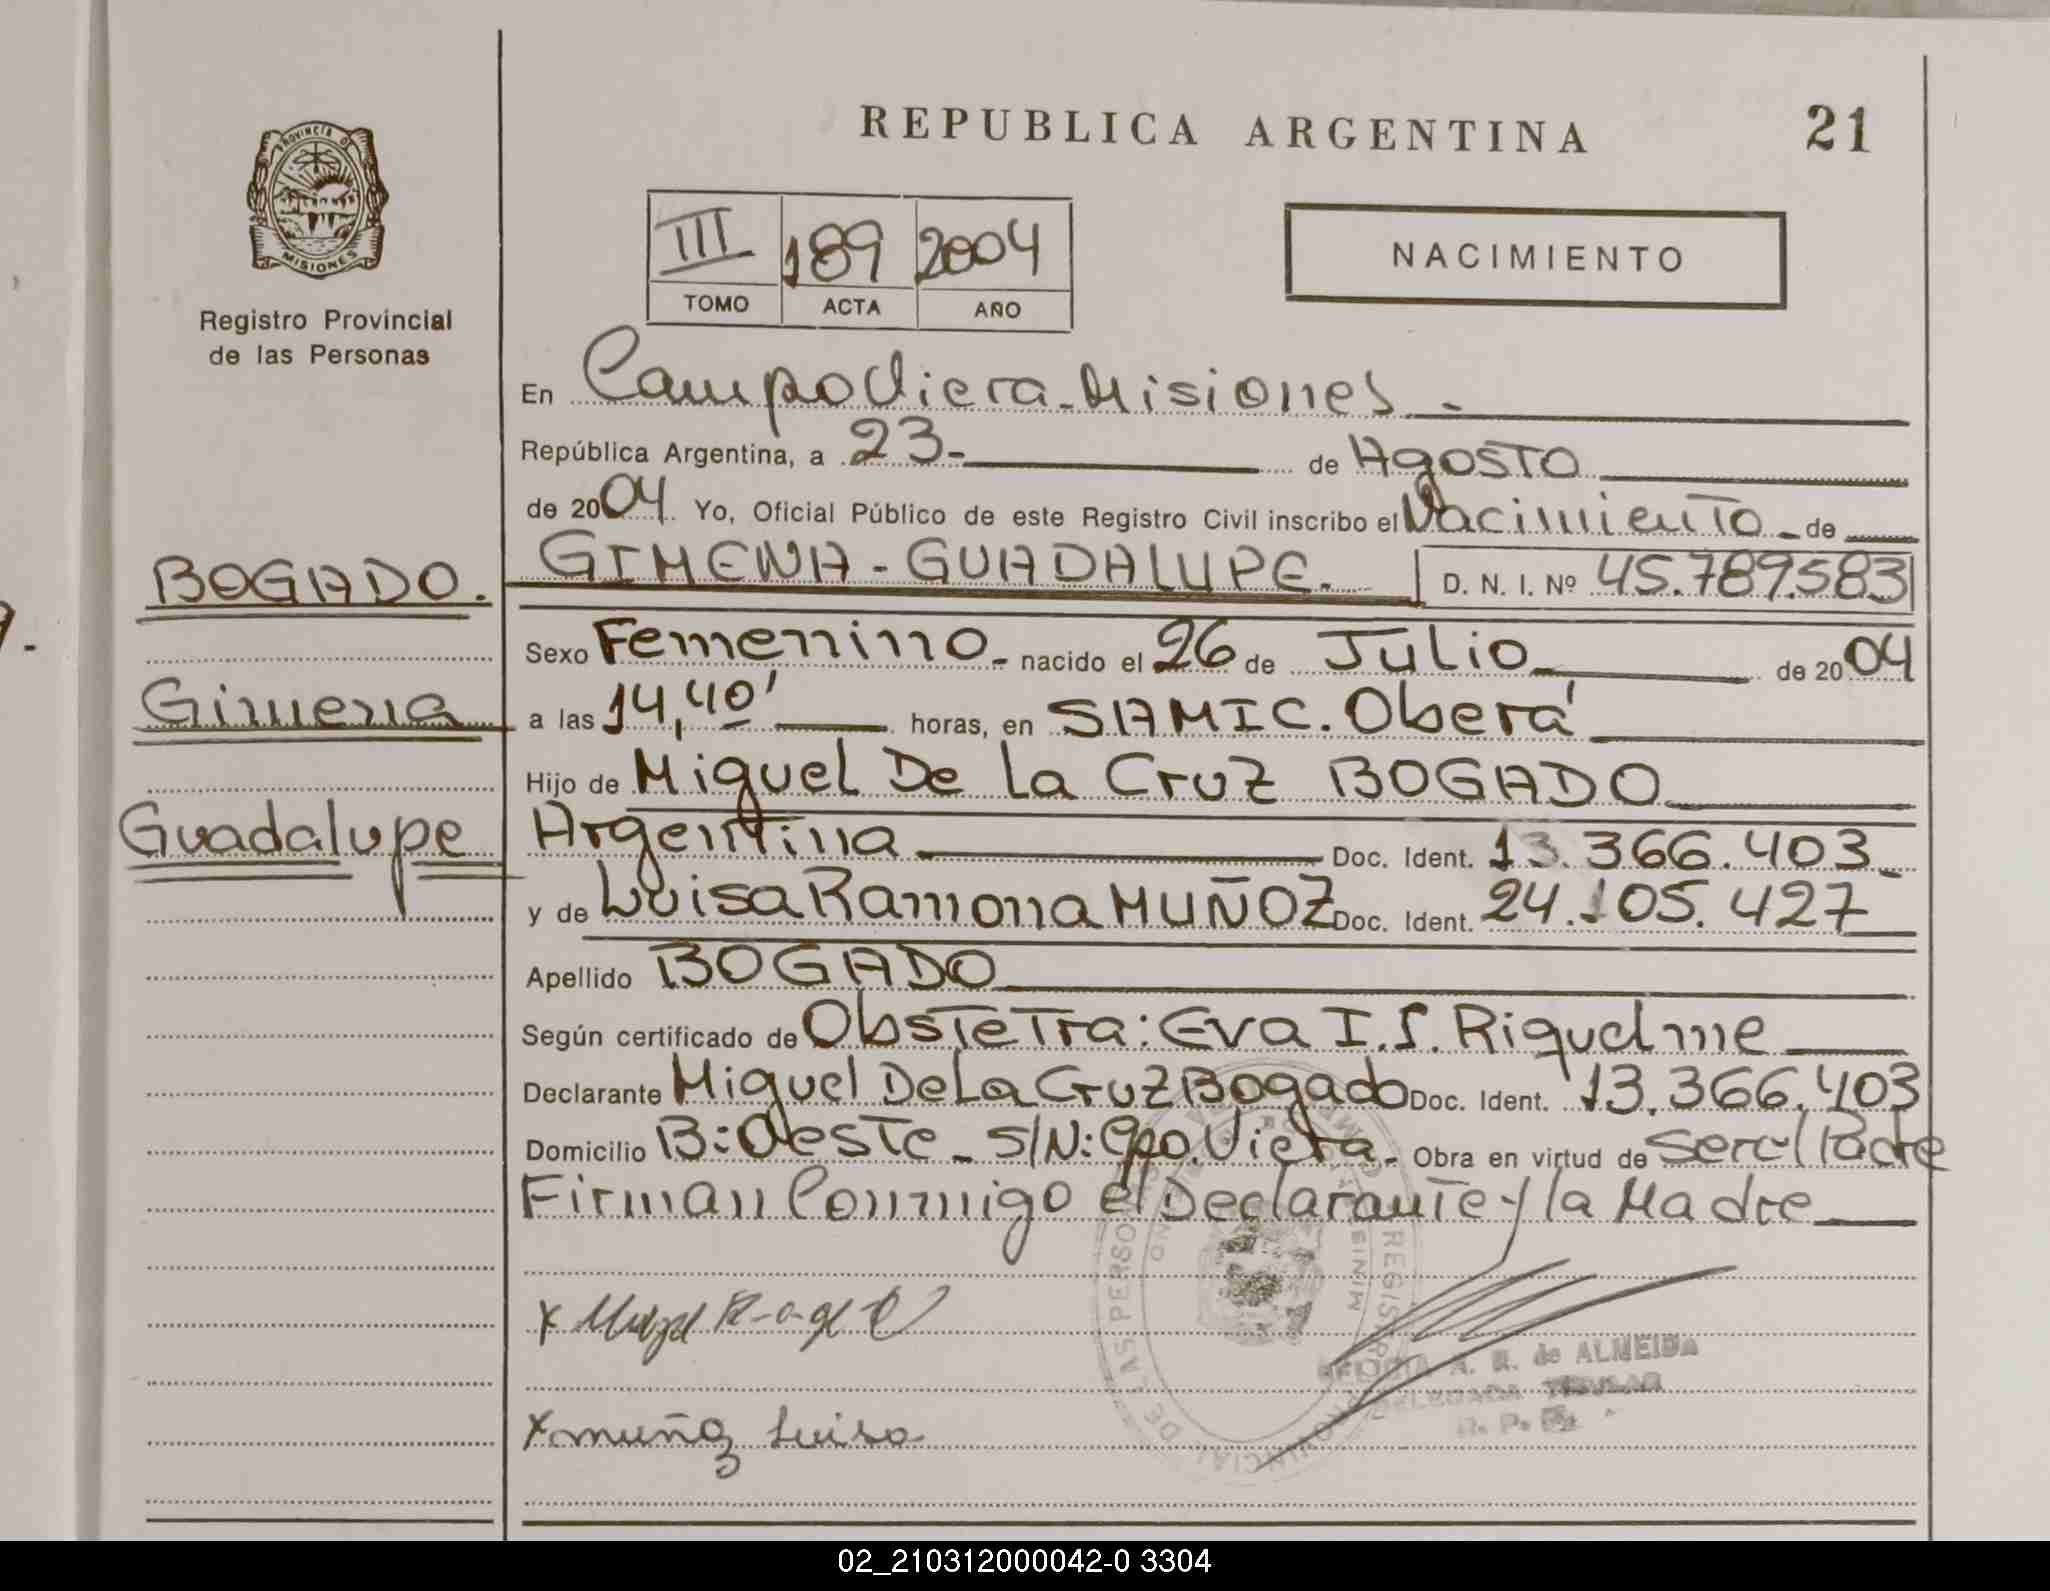 REPUBLICA ARGENTINA
21
PROVINCIA DE
MISIONES
Registro Provincial
de las Personas
III 189 2004
TOMO ACTA AÑO
NACIMIENTO
En Campo Viera - Misiones -
República Argentina, a 23- de Agosto
de 2004 Yo, Oficial Público de este Registro Civil inscribo el Nacimiento - de
BOGADO. GIMENA - GUADALUPE. D. N. I. Nº 45.789.583
Sexo Femenino - nacido el 26 de Julio de 2004
Gimena a las 14,40' horas, en SAMIC. Oberá
Hijo de Miguel De La Cruz BOGADO
Guadalupe Argentina Doc. Ident. 13.366.403-
y de Luisa Ramona MUÑOZ Doc. Ident. 24.105.427
Apellido BOGADO
Según certificado de Obstetra: Eva I.S. Riquelme
Declarante Miguel De La Cruz Bogado Doc. Ident. 13.366.403
Domicilio B: Oeste - S/N: Cpo. Viera - Obra en virtud de ser el Padre
Firman Conmigo el Declarante y la Madre
REGISTRO PROVINCIAL DE LAS PERSONAS
x
x muñoz Luisa
A. R. de ALMEIDA
DELEGADA TITULAR
R. P. P.
02_210312000042-0 3304